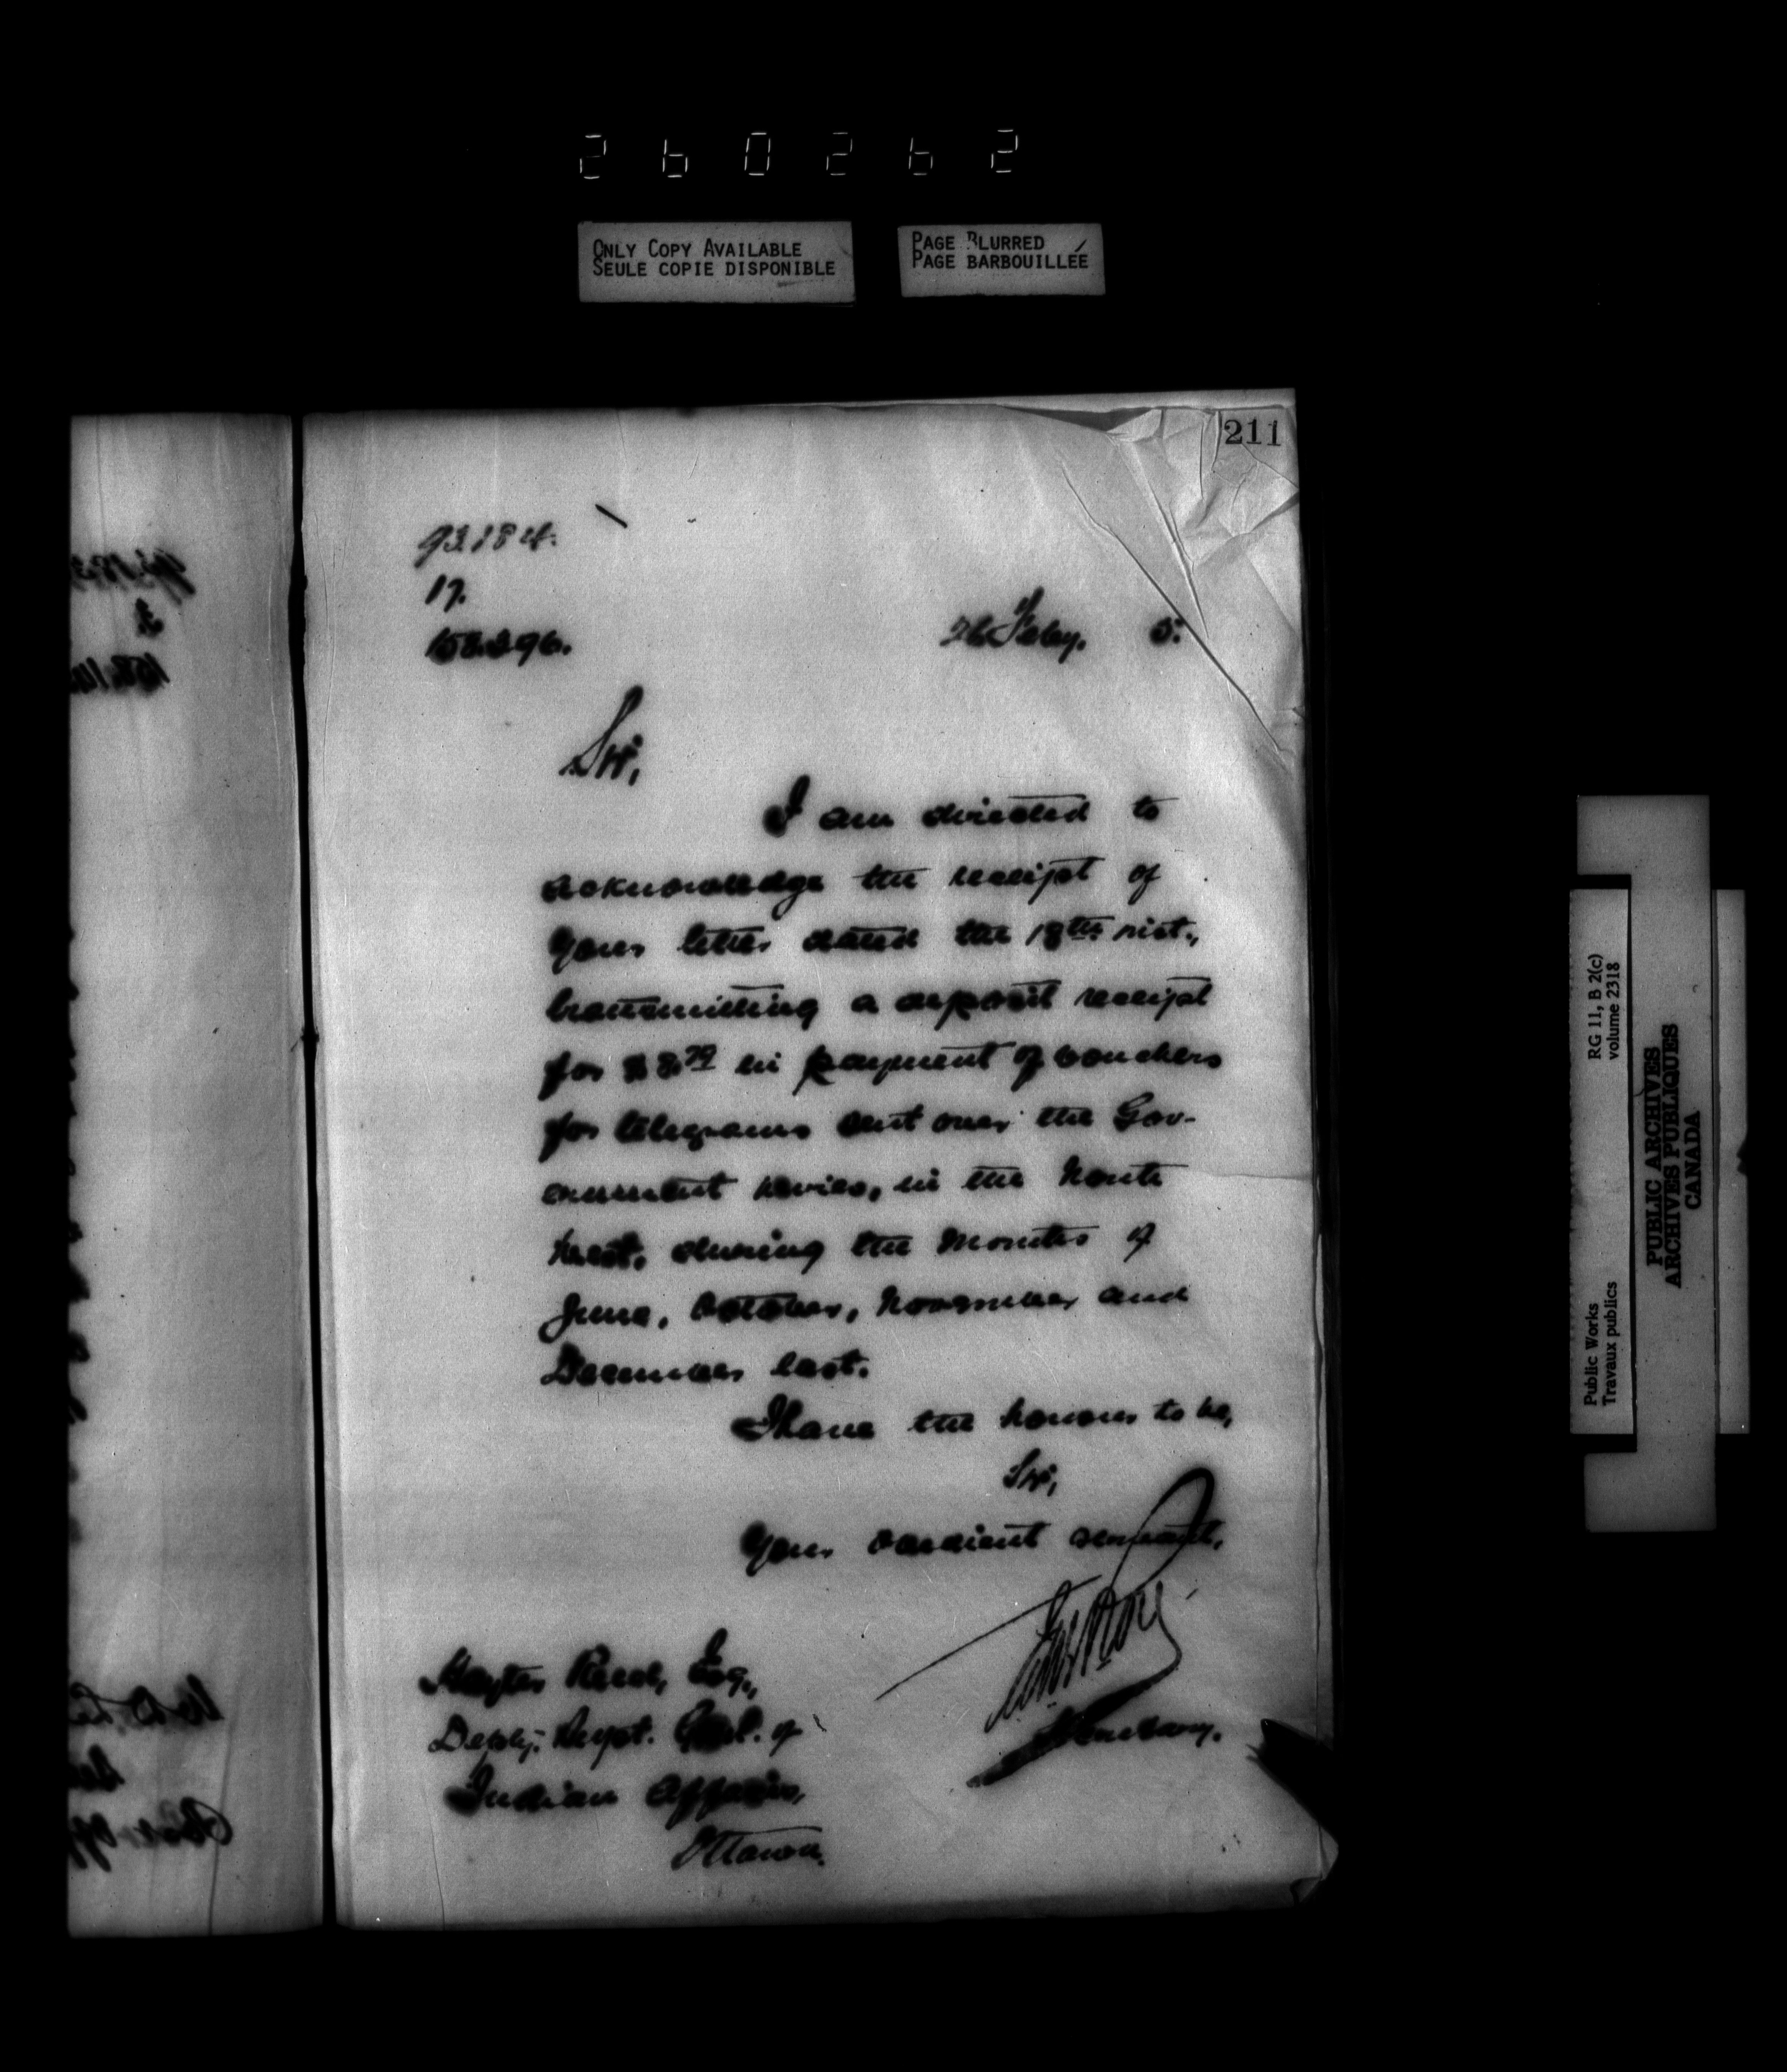 260262
ONLY COPY AVAILABLE
SEULE COPIE DISPONIBLE
PAGE BLURRED
PAGE BARBOUILLÉE
211
93184.
17.
26 Feby. 5.
Sir,
I am directed to
acknowledge the receipt of
your letter dated the 18th inst.,
transmitting a deposit receipt
for in payment of vouchers
for telegrams sent over the Gov-
ernment wires, in the North
West, during the months of
June, October, November and
December last.
I have the honour to be,
Sir,
Your obedient servant,
Secretary.
Hayter Reed, Esq.,
Deputy Supt. Genl. of
Indian Affairs,
Ottawa.
Public Works
Travaux publics
RG 11, B 2(c)
volume 2318
PUBLIC ARCHIVES
ARCHIVES PUBLIQUES
CANADA